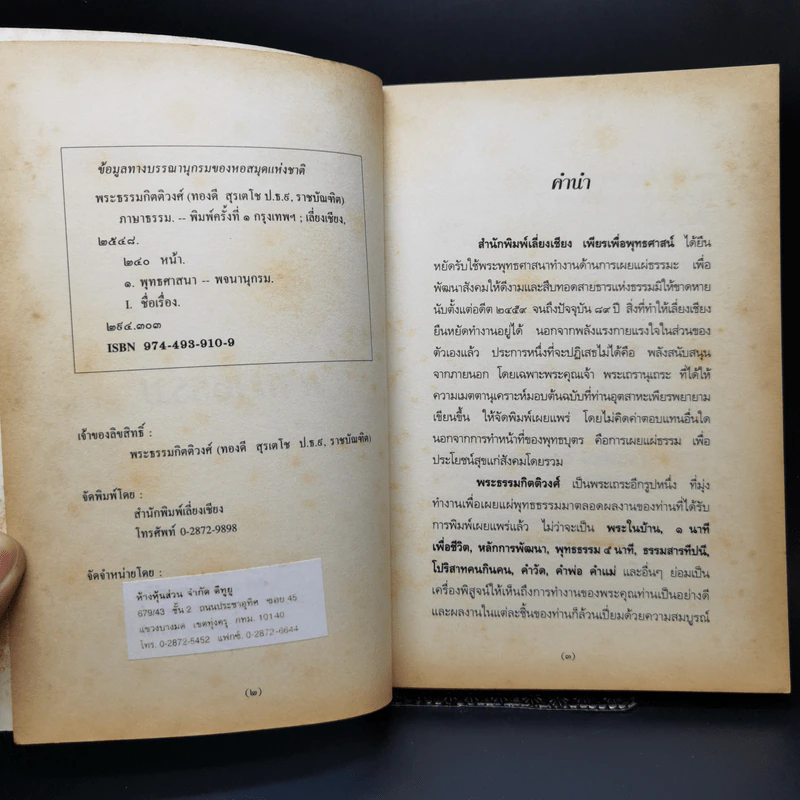 ข้อมูลทางบรรณานุกรมของหอสมุดแห่งชาติ
พระธรรมกิตติวงศ์ (ทองดี สุรเตโช ป.ธ.๙, ราชบัณฑิต)
ภาษาธรรม. -- พิมพ์ครั้งที่ ๑ กรุงเทพฯ ; เลี่ยงเชียง,
๒๕๔๘.
๒๔๐ หน้า.
๑. พุทธศาสนา -- พจนานุกรม.
I. ชื่อเรื่อง.
๒๙๔.๓๐๓
ISBN 974-493-910-9
เจ้าของลิขสิทธิ์ :
พระธรรมกิตติวงศ์ (ทองดี สุรเตโช ป.ธ.๙, ราชบัณฑิต)
จัดพิมพ์โดย :
สำนักพิมพ์เลี่ยงเชียง
โทรศัพท์ 0-2872-9898
จัดจำหน่ายโดย :
ห้างหุ้นส่วน จำกัด ดีทูยู
679/43 ชั้น 2 ถนนประชาอุทิศ ซอย 45
แขวงบางมด เขตทุ่งครุ กทม. 10140
โทร. 0-2872-5452 แฟกซ์. 0-2872-6644
(๒)
คำนำ
สำนักพิมพ์เลี่ยงเชียง เพียรเพื่อพุทธศาสน์ ได้ยืน
หยัดรับใช้พระพุทธศาสนาทำงานด้านการเผยแผ่ธรรมะ เพื่อ
พัฒนาสังคมให้ดีงามและสืบทอดสายธารแห่งธรรมมิให้ขาดหาย
นับตั้งแต่อดีต ๒๔๕๙ จนถึงปัจจุบัน ๘๙ ปี สิ่งที่ทำให้เลี่ยงเชียง
ยืนหยัดทำงานอยู่ได้ นอกจากพลังแรงกายแรงใจในส่วนของ
ตัวเองแล้ว ประการหนึ่งที่จะปฏิเสธไม่ได้คือ พลังสนับสนุน
จากภายนอก โดยเฉพาะพระคุณเจ้า พระเถรานุเถระ ที่ได้ให้
ความเมตตานุเคราะห์มอบต้นฉบับที่ท่านอุตสาหะเพียรพยายาม
เขียนขึ้น ให้จัดพิมพ์เผยแพร่ โดยไม่คิดค่าตอบแทนอื่นใด
นอกจากการทำหน้าที่ของพุทธบุตร คือการเผยแผ่ธรรม เพื่อ
ประโยชน์สุขแก่สังคมโดยรวม
พระธรรมกิตติวงศ์ เป็นพระเถระอีกรูปหนึ่ง ที่มุ่ง
ทำงานเพื่อเผยแผ่พุทธธรรมมาตลอดผลงานของท่านที่ได้รับ
การพิมพ์เผยแพร่แล้ว ไม่ว่าจะเป็น พระในบ้าน, ๑ นาที
เพื่อชีวิต, หลักการพัฒนา, พุทธธรรม ๕ นาที, ธรรมสารทีปนี,
โปริสาทคนกินคน, คำวัด, คำพ่อ คำแม่ และอื่นๆ ย่อมเป็น
เครื่องพิสูจน์ให้เห็นถึงการทำงานของพระคุณท่านเป็นอย่างดี
และผลงานในแต่ละชิ้นของท่านก็ล้วนเปี่ยมด้วยความสมบูรณ์
(๓)